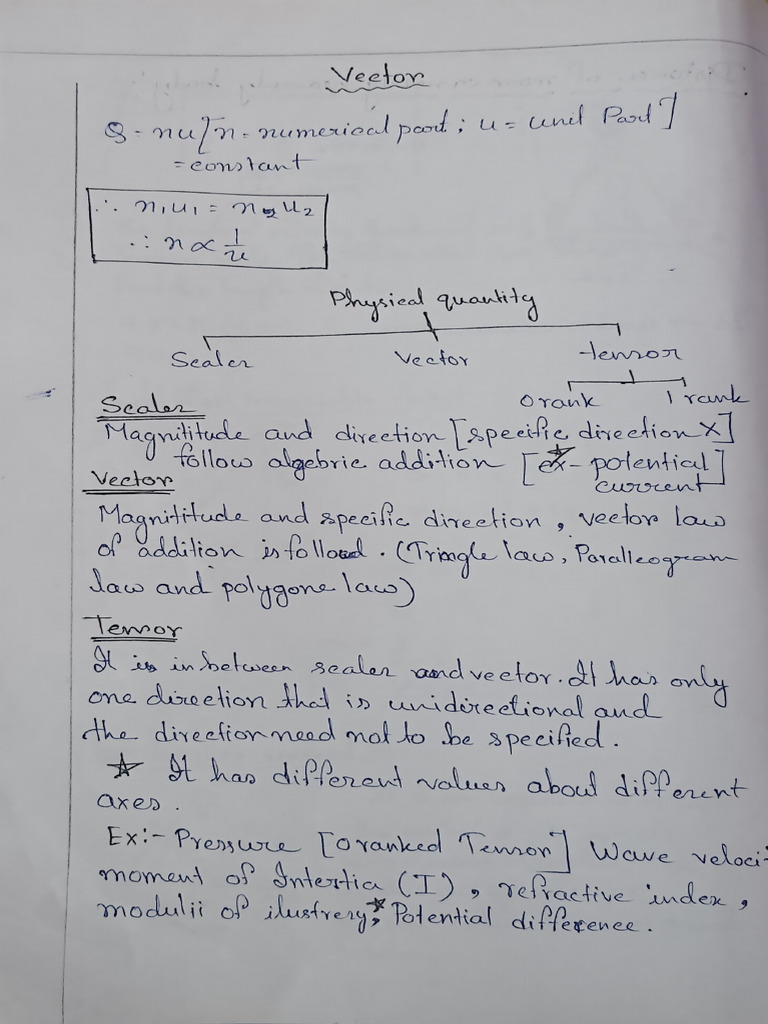 Vector
Q = nu [n = numerical part; u = unit Part]
= constant
∴ n₁u₁ = n₂u₂
∴ n ∝ 1/u
Physical quantity
Scaler Vector tensor
0 rank 1 rank
Scaler
Magnititude and direction [specific direction X]
follow algebric addition [ex - potential]
current
Vector
Magnititude and specific direction, vector law
of addition is followed. (Triangle law, Paralleogram
law and polygone law)
Tensor
It is in between scaler and vector. It has only
one direction that is unidirectional and
the direction need not to be specified.
☆ It has different values about different
axes.
Ex:- Pressure [0 ranked Tensor] Wave veloci
moment of Intertia (I), refractive index,
modulii of ☆ Potential difference.